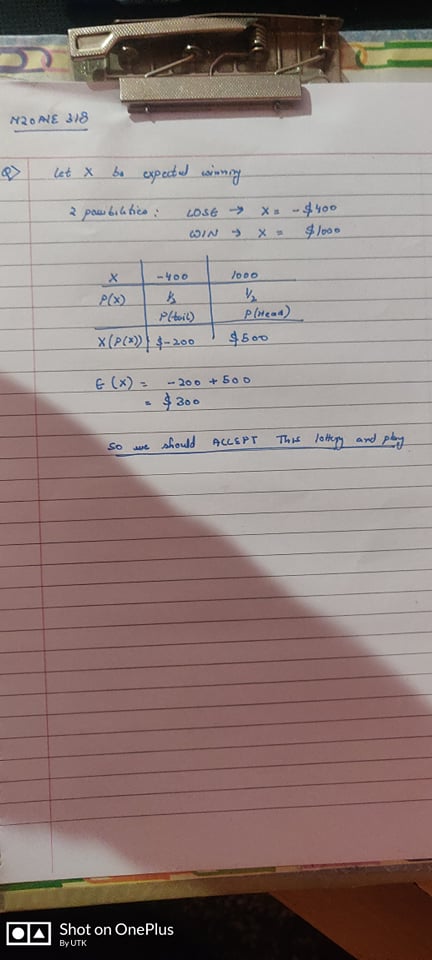 M20AIE 318
Q> Let X be expected winning
2 possibilities : LOSE → X = - $400
WIN → X = $1000
X -400 1000
P(X) ½ ½
P(tail) P(Head)
X(P(X)) $-200 $500
E(X) = -200 + 500
= $300
So we should ACCEPT This lottery and play
Shot on OnePlus
By UTK